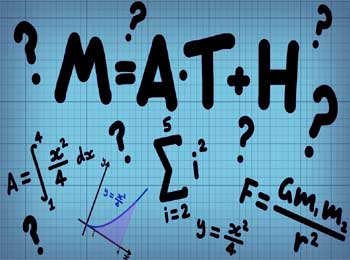 ? ?
M=A·T+H
? ? ? ?
5
A = ∫₁⁴ x²/4 dx
∑ i²
i=2
y = x²/4
y = x²/4
F = Gm₁m₂/r²
?